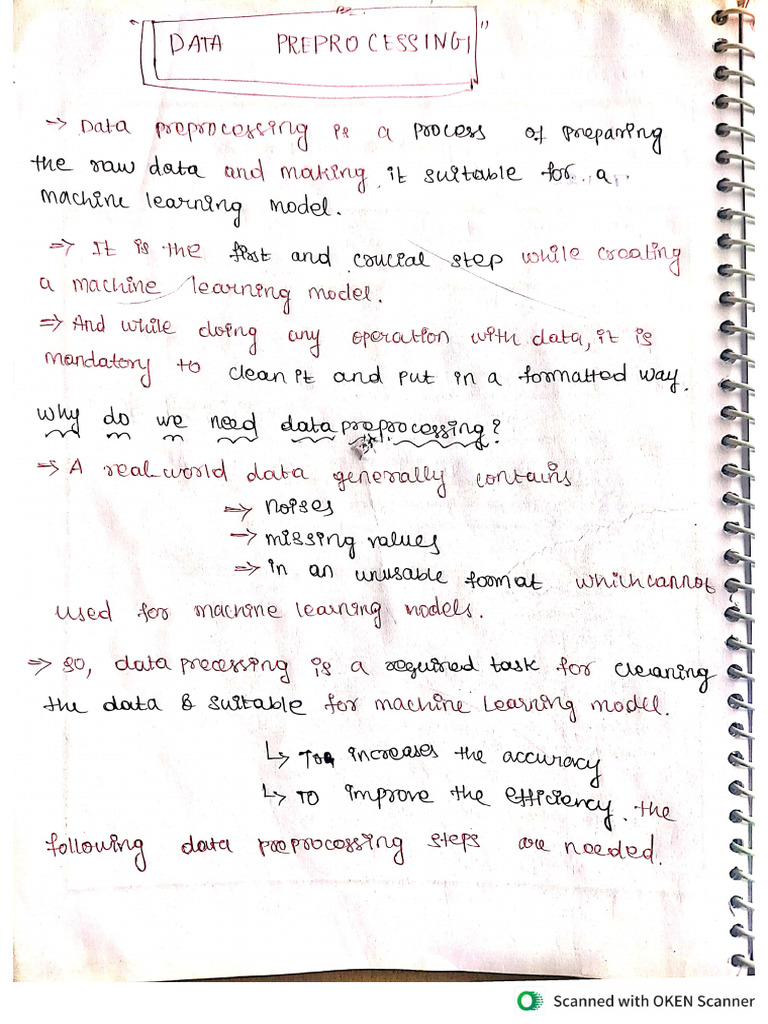 "DATA PREPROCESSING"
→ Data preprocessing is a process of preparing
the raw data and making it suitable for a
machine learning model.
⇒ It is the first and crucial step while creating
a machine learning model.
⇒ And while doing any operation with data, it is
mandatory to clean it and put in a formatted way.
Why do we need data preprocessing?
⇒ A real-world data generally contains
⇒ noises
→ missing values
⇒ in an unusable format which cannot
used for machine learning models.
⇒ so, data precessing is a required task for cleaning
the data & suitable for machine learning model.
↳ To increases the accuracy
↳ To improve the efficiency. the
following data preprocessing steps are needed.
Scanned with OKEN Scanner